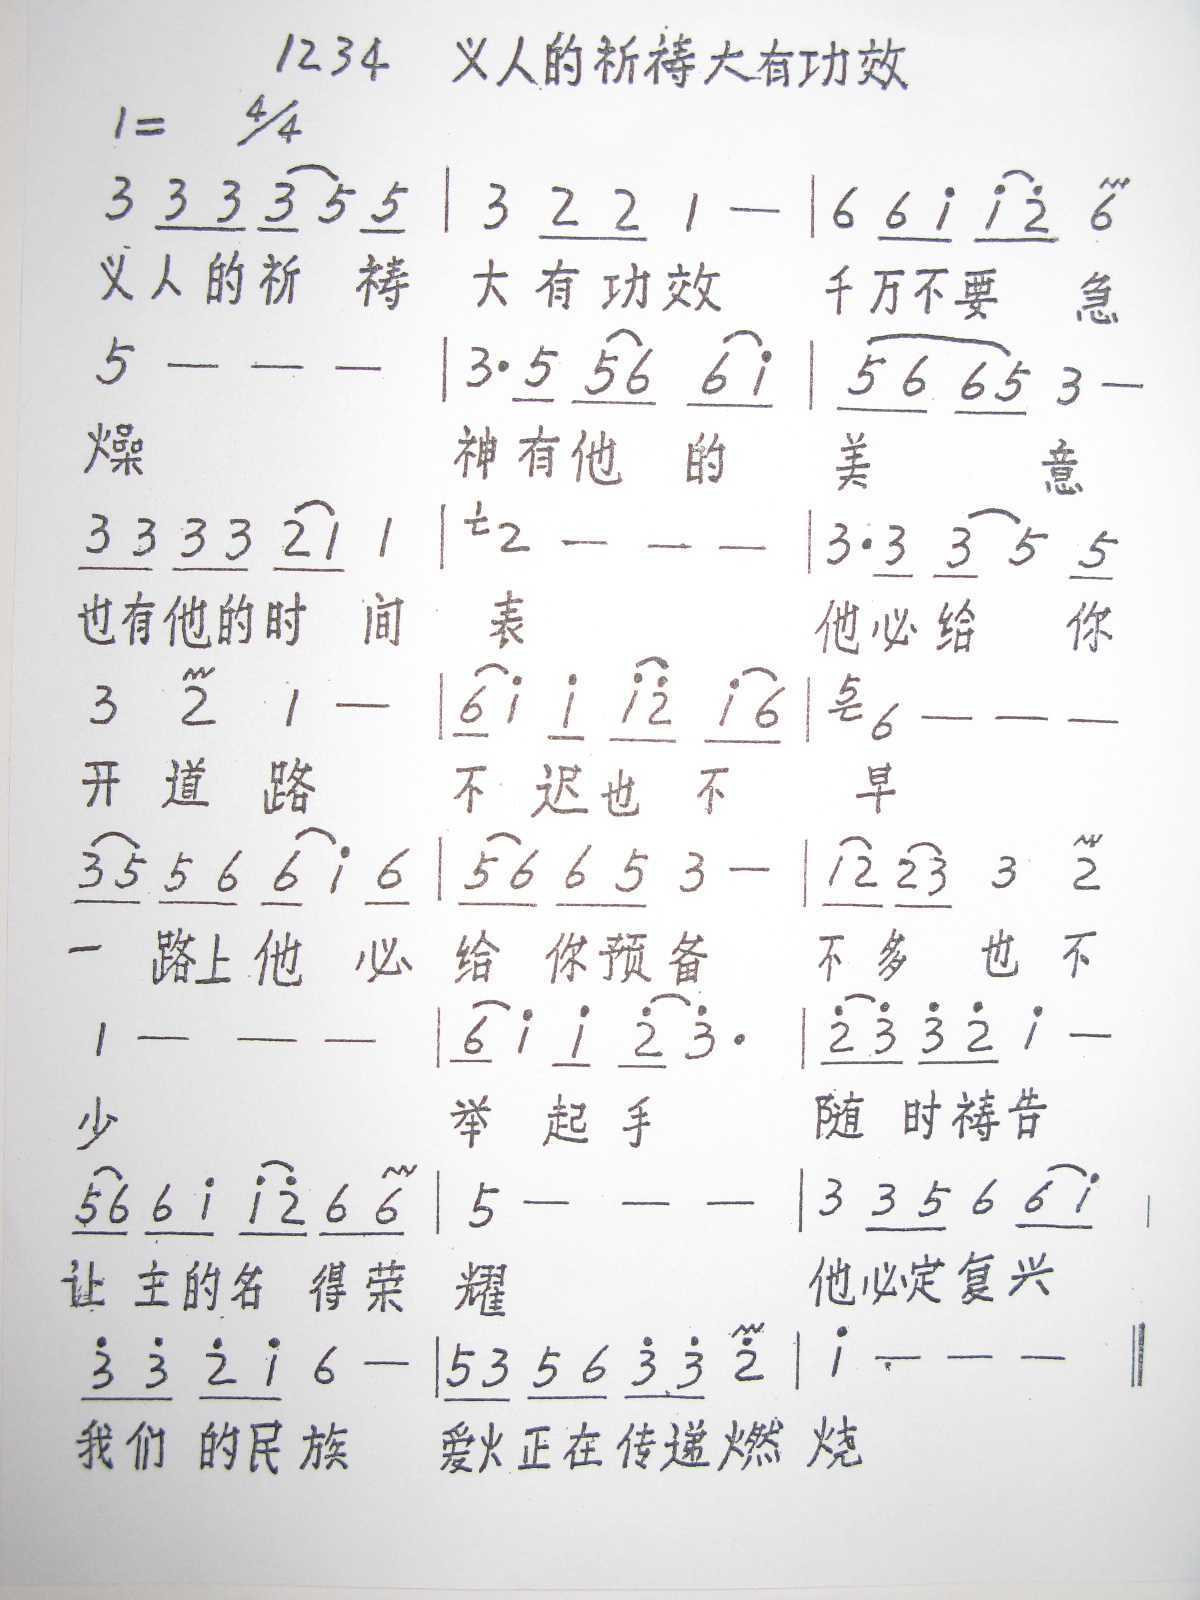 1234 义人的祈祷大有功效
1= 4/4
3 3 3 3 5 5 | 3 2 2 1 — | 6 6 i i 2̇ 6
义人的祈 祷 大有功效 千万不要 急
5 — — — | 3· 5 56 6i | 56 65 3 —
燥 神有他 的 美 意
33 33 21 1 | 2 — — — | 3· 3 3 5 5
也有他的时 间 表 他必给 你
3 2 1 — | 6 i i i2̇ i6 | 5 6 — — —
开 道 路 不 迟也 不 早
35 5 6 6 i 6 | 56 6 5 3 — | 12 23 3 2
一 路上他 必 给 你预备 不多 也 不
1 — — — | 6 i i 2̇ 3̇· | 2̇3̇ 3̇2̇ i —
少 举 起 手 随 时祷告
56 6 i i2̇ 6 6 | 5 — — — | 3 3 5 6 6 i |
让 主的名 得荣 耀 他必定复兴
3̇ 3̇ 2̇ i 6 — | 53 5 6 3̇ 3̇ 2̇ | i — — — ‖
我们 的民族 爱火正在传递燃 烧